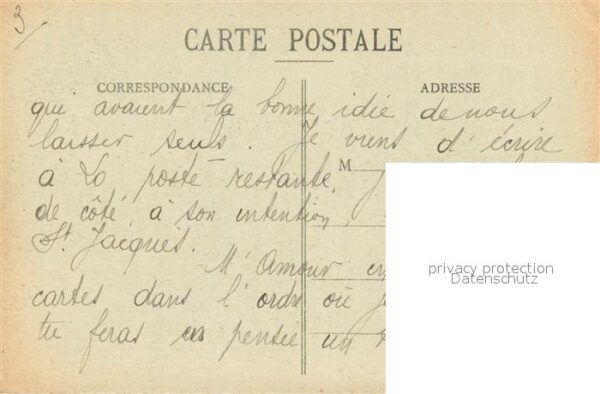 3
CARTE POSTALE
CORRESPONDANCE
ADRESSE
qui avaient la bonne idée de nous
laisser seuls. Je viens d'écrire
M
à La poste restante,
de côté, à son intention,
St. Jacques.
M' Amour
cartes dans l'ordre où
tu feras en pensée un
privacy protection
Datenschutz